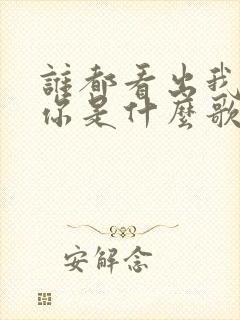 誰都看出我
你是什麼歌
安解念